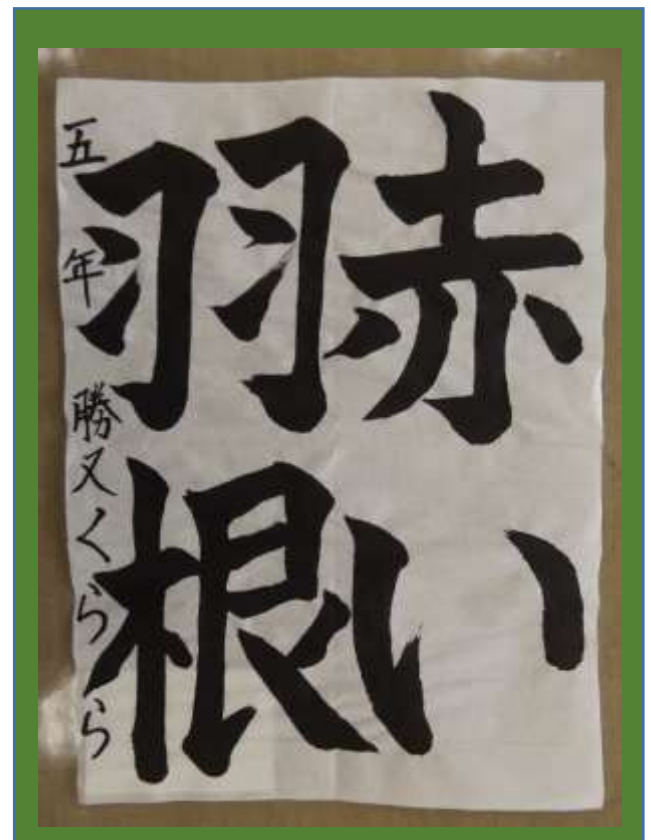 赤い
羽根
五年 勝又くらら